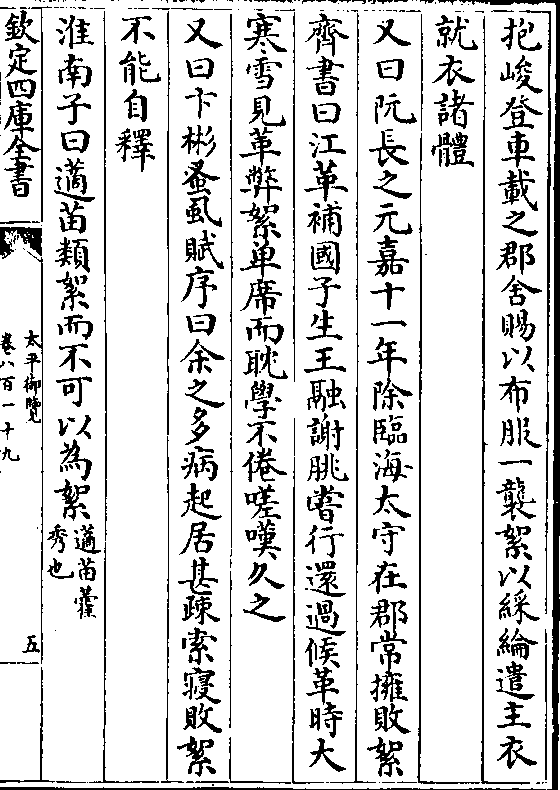 抱峻登車載之郡舍賜以布服一襲絮以綵綸遣主衣
就衣諸體
又曰阮長之元嘉十一年除臨海太守在郡常擁敗絮
齊書曰江革補國子生王融謝朓嘗行還過候革時大
寒雪見革弊絮单席而耽學不倦嗟嘆久之
又曰卞彬蚤虱賦序曰余之多病起居甚疎索寝敗絮
不能自釋
淮南子曰薖苗類絮而不可以為絮薖苗雚
秀也
欽定四庫全書
太平御覽
卷八百一十九
五